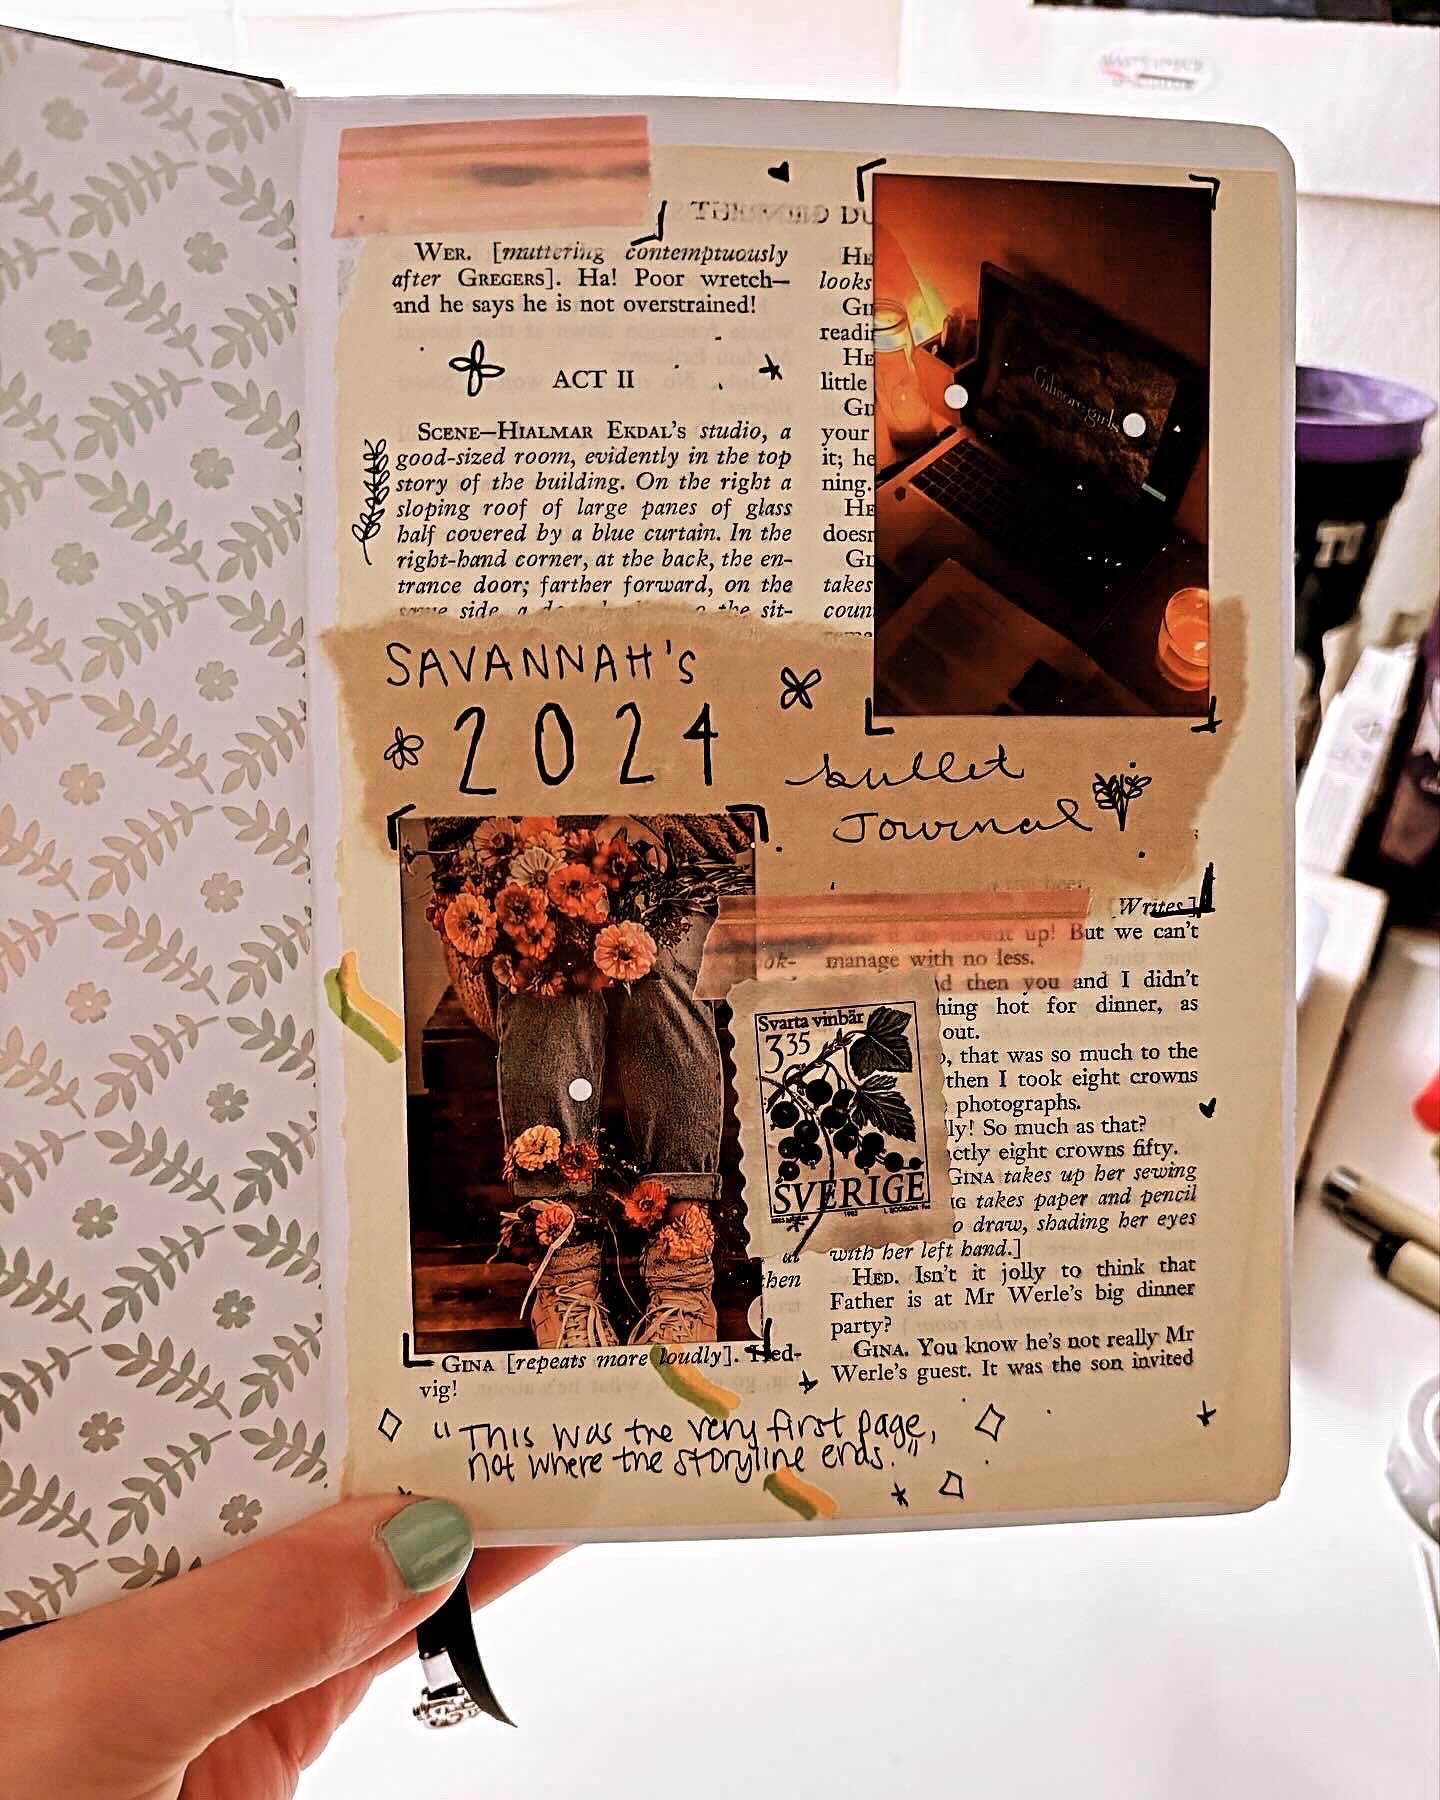 WER. [muttering contemptuously
after GREGERS]. Ha! Poor wretch—
and he says he is not overstrained!
ACT II
SCENE—HIALMAR EKDAL'S studio, a
good-sized room, evidently in the top
story of the building. On the right a
sloping roof of large panes of glass
half covered by a blue curtain. In the
right-hand corner, at the back, the en-
trance door; farther forward, on the
side, a the sit-
HE
looks
GI
readi
HE
little
GI
your
it; he
ning.
HE
doesn
GI
takes
coun
Gilmore girls
SAVANNAH'S
2024
bullet
Journal
[Writes]
up! But we can't
manage with no less.
then you and I didn't
hing hot for dinner, as
out.
, that was so much to the
then I took eight crowns
photographs.
ly! So much as that?
ctly eight crowns fifty.
GINA takes up her sewing
IG takes paper and pencil
o draw, shading her eyes
with her left hand.]
HED. Isn't it jolly to think that
Father is at Mr Werle's big dinner
party?
GINA. You know he's not really Mr
Werle's guest. It was the son invited
ok-
at
then
Svarta vinbär
3 35
SVERIGE
GINA [repeats more loudly]. Hed-
vig!
"This was the very first page,
not where the storyline ends."
TU